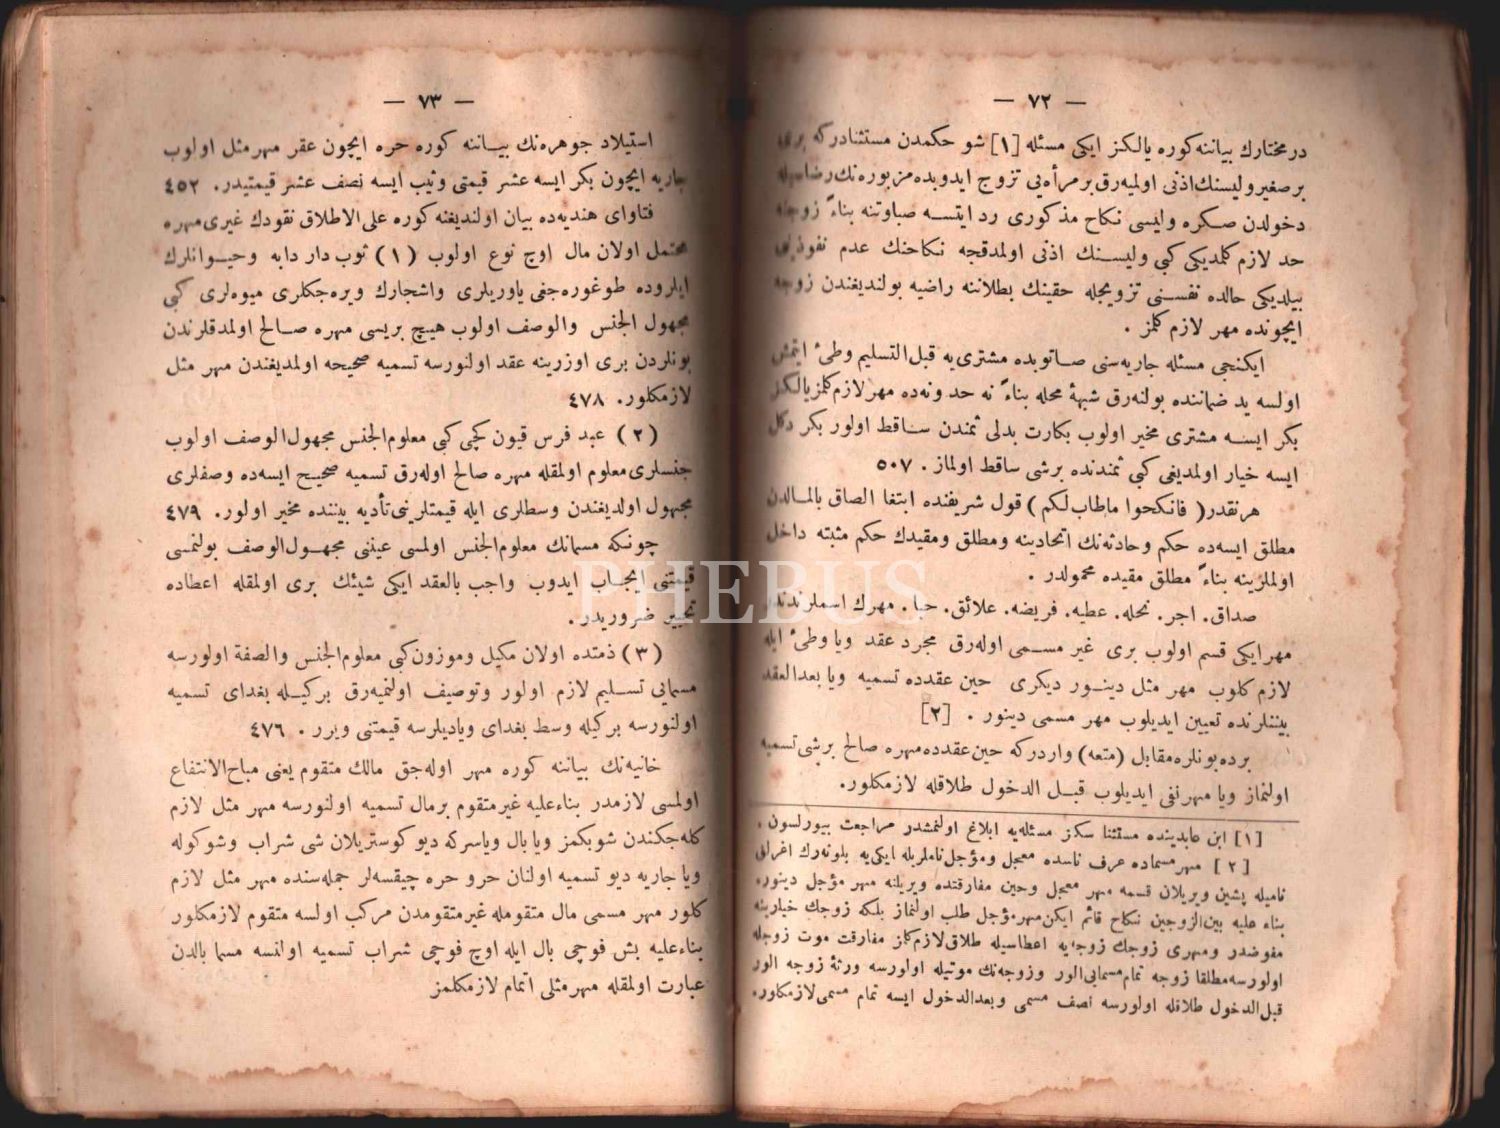 — ٧٢ —
درمختارك بياننه كوره يالكز ايكى مسئله [١] شو حكمدن مستثنادركه برى
برصغير وليسنك اذنى اولميه رق برمرأه يى تزوج ايدوبده مزبوره نك رضاسيله
دخولدن صكره وليسى نكاح مذكورى رد ايتسه صباوتنه بناءً زوجله
حد لازم كلمديكى كبى وليسنك اذنى اولمدقجه نكاحنك عدم نفوذينى
بيلديكى حالده نفسنى تزويجله حقينك بطلاننه راضيه بولنديغندن زوجه
ايچونده مهر لازم كلمز .
ايكنجى مسئله جاريه سنى صاتوبده مشترى يه قبل التسليم وطىٔ ايتمش
اولسه يد ضماننده بولنه رق شبهۀ محله بناءً نه حد ونه ده مهر لازم كلمز يالكز
بكر ايسه مشترى مخير اولوب بكارت بدلى ثمندن ساقط اولور بكر دكل
ايسه خيار اولمديغى كبى ثمندنده برشى ساقط اولماز . ٥٠٧
هرنقدر ( فانكحوا ماطاب لكم ) قول شريفنده ابتغا الصاق بالمالدن
مطلق ايسه ده حكم وحادثه نك اتحادينه ومطلق ومقيدك حكم مثبته داخل
اولملرينه بناءً مطلق مقيده محمولدر .
صداق . اجر . نحله . عطيه . فريضه . علائق . حبا . مهرك اسملرندندر
مهر ايكى قسم اولوب برى غير مسمى اوله رق مجرد عقد ويا وطىٔ ايله
لازم كلوب مهر مثل دينور ديكرى حين عقدده تسميه ويا بعدالعقد
بيننلرنده تعيين ايديلوب مهر مسمى دينور . [٢]
برده بونلره مقابل (متعه) واردركه حين عقدده مهره صالح برشى تسميه
اولنماز ويا مهر نفى ايديلوب قبل الدخول طلاقله لازمكلور.
[١] ابن عابدينده مستثنا سكز مسئله يه ابلاغ اولنمشدر مراجعت بيورلسون .
[٢] مهر مسماده عرف ناسده معجل ومؤجل ناملريله ايكى يه بلونه رك اغرلق
ناميله پشين ويريلان قسمه مهر معجل وحين مفارقتده ويريلنه مهر مؤجل دينور.
بناء عليه بين الزوجين نكاح قائم ايكن مهر مؤجل طلب اولنماز بلكه زوجك خيارينه
مفوضدر ومهرى زوجك زوجه يه اعطاسيله طلاق لازم كلمز مفارقت موت زوجله
اولورسه مطلقا زوجه تمام مسمايى الور وزوجه نك موتيله اولورسه ورثۀ زوجه الور
قبل الدخول طلاقله اولورسه نصف مسمى وبعدالدخول ايسه تمام مسمى لازمكلور.
— ٧٣ —
استيلاد جوهره نك بياننه كوره حره ايچون عقر مهر مثل اولوب
جاريه ايچون بكر ايسه عشر قيمتى وثيب ايسه نصف عشر قيمتيدر. ٤٥٢
فتاواى هنديه ده بيان اولنديغنه كوره على الاطلاق نقودك غيرى مهره
محتمل اولان مال اوچ نوع اولوب (١) ثوب دار دابه وحيوانلرك
ايلروده طوغوره جغى ياوريلرى واشجارك ويره جكلرى ميوه لرى كبى
مجهول الجنس والوصف اولوب هيچ بريسى مهره صالح اولمدقلرندن
بونلردن برى اوزرينه عقد اولنورسه تسميه صحيحه اولمديغندن مهر مثل
لازمكلور. ٤٧٨
(٢) عبد فرس قيون كچى كبى معلوم الجنس مجهول الوصف اولوب
جنسلرى معلوم اولمقله مهره صالح اوله رق تسميه صحيح ايسه ده وصفلرى
مجهول اولديغندن وسطلرى ايله قيمتلرينى تأديه بيننده مخير اولور. ٤٧٩
چونكه مسمانك معلوم الجنس اولمسى عيننى مجهول الوصف بولنمسى
قيمتنى ايجاب ايدوب واجب بالعقد ايكى شيئك برى اولمقله اعطاده
تخيير ضروريدر.
(٣) ذمتده اولان مكيل وموزون كبى معلوم الجنس والصفة اولورسه
مسمانى تسليم لازم اولور وتوصيف اولنميه رق بركيله بغداى تسميه
اولنورسه بركيله وسط بغداى وياديلرسه قيمتنى ويرر . ٤٧٦
خانيه نك بياننه كوره مهر اوله جق مالك متقوم يعنى مباح الانتفاع
اولمسى لازمدر بناء عليه غير متقوم برمال تسميه اولنورسه مهر مثل لازم
كله جكندن شوبكمز ويا بال وياسركه ديو كوستريلان شى شراب وشوكوله
ويا جاريه ديو تسميه اولنان حرو حره چيقسه لر جمله سنده مهر مثل لازم
كلور مهر مسمى مال متقومله غير متقومدن مركب اولسه متقوم لازمكلور
بناء عليه بش فوچى بال ايله اوچ فوچى شراب تسميه اولنسه مسما بالدن
عبارت اولمقله مهر مثلى اتمام لازمكلمز
PHEBUS